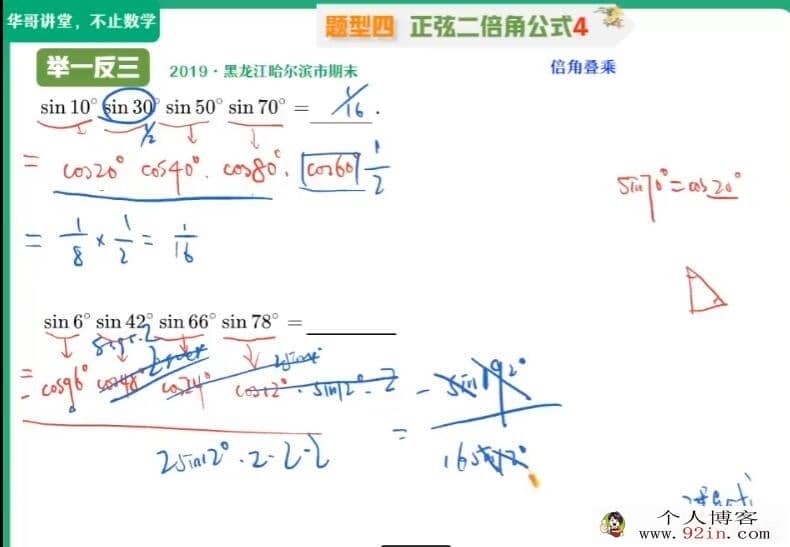 华哥讲堂，不止数学
题型四 正弦二倍角公式4
举一反三 2019·黑龙江哈尔滨市期末 倍角叠乘
sin 10° sin 30° sin 50° sin 70° = 1/16 .
1/2
= cos20° cos40° · cos80° · cos60° 1/2
sin70° = cos20°
= 1/8 × 1/2 = 1/16
sin 6° sin 42° sin 66° sin 78° =
= cos96° cos48° cos24° cos12° · sin12° · 2
2sin12° · 2 · 2 · 2
= - sin192° / 16sin12°
个人博客
www.92in.com